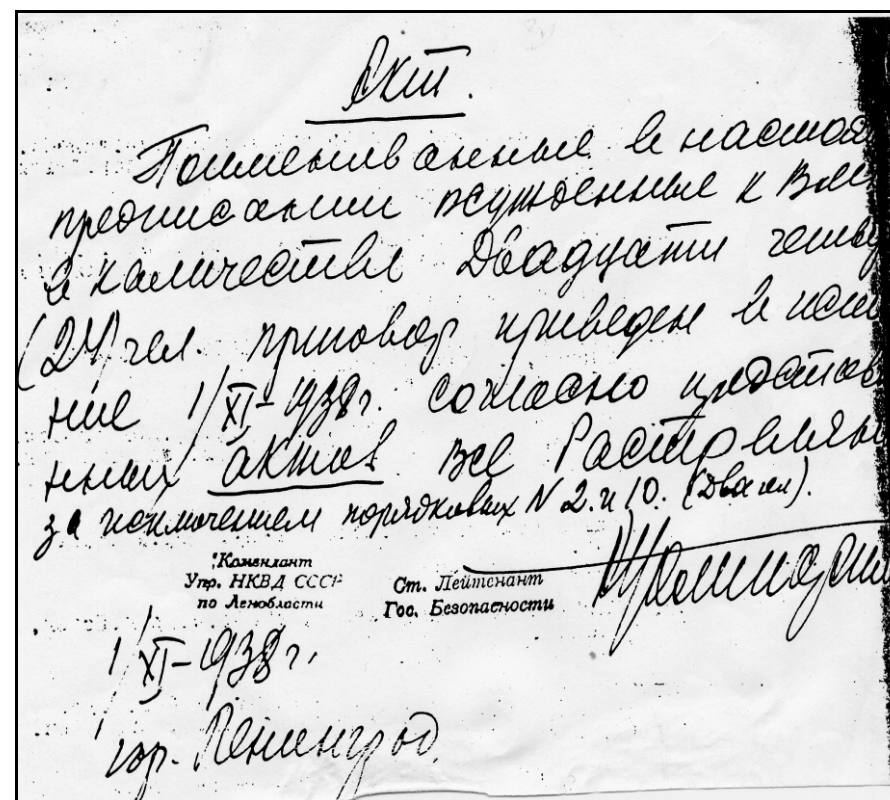 Акт.
Поименованные в настоя
предписании осужденные к ВМ
в количестве Двадцати четы
(24) чел. приговор приведен в испо
ние 1/XI-1938г. согласно представ
нных актов все Расстрелян
за исключением порядковых N 2. и 10. (Два чел).
Комендант
Упр. НКВД СССР
по Ленобласти
Ст. Лейтенант
Гос. Безопасности
1/XI-1938г.
гор. Ленинград